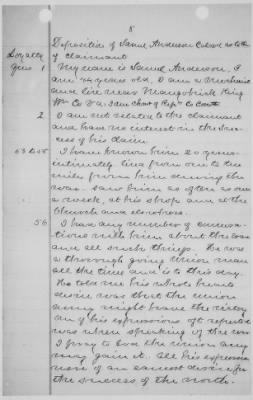 8
Deposition of Samuel Anderson Colored as to Loyalty
of claimant
Loyalty
Ques 1 My name is Samuel Anderson, I
am 24 years old, I am a Mechanic
and live near Mangohick King
Wm Co Va. I am
2 I am not related to the claimant
and have no interest in the suc-
cess of his claim.
53 to 55 I have known him 20 years
intimately lived from one to two
miles from him during the
war. Saw him as often as once
a week, at his shop and at the
Church and elsewhere.
56 I had any number of conversa-
tions with him about the war
and all such things. He was
a thorough going Union man
all the time and is to this day.
He told me his whole hearts
desire was that the union
army might have the victory
one of his expressions oft repeated
was when speaking of the war
I pray to God the union army
may gain it. All his expressions
were of an earnest desire for
the success of the north.